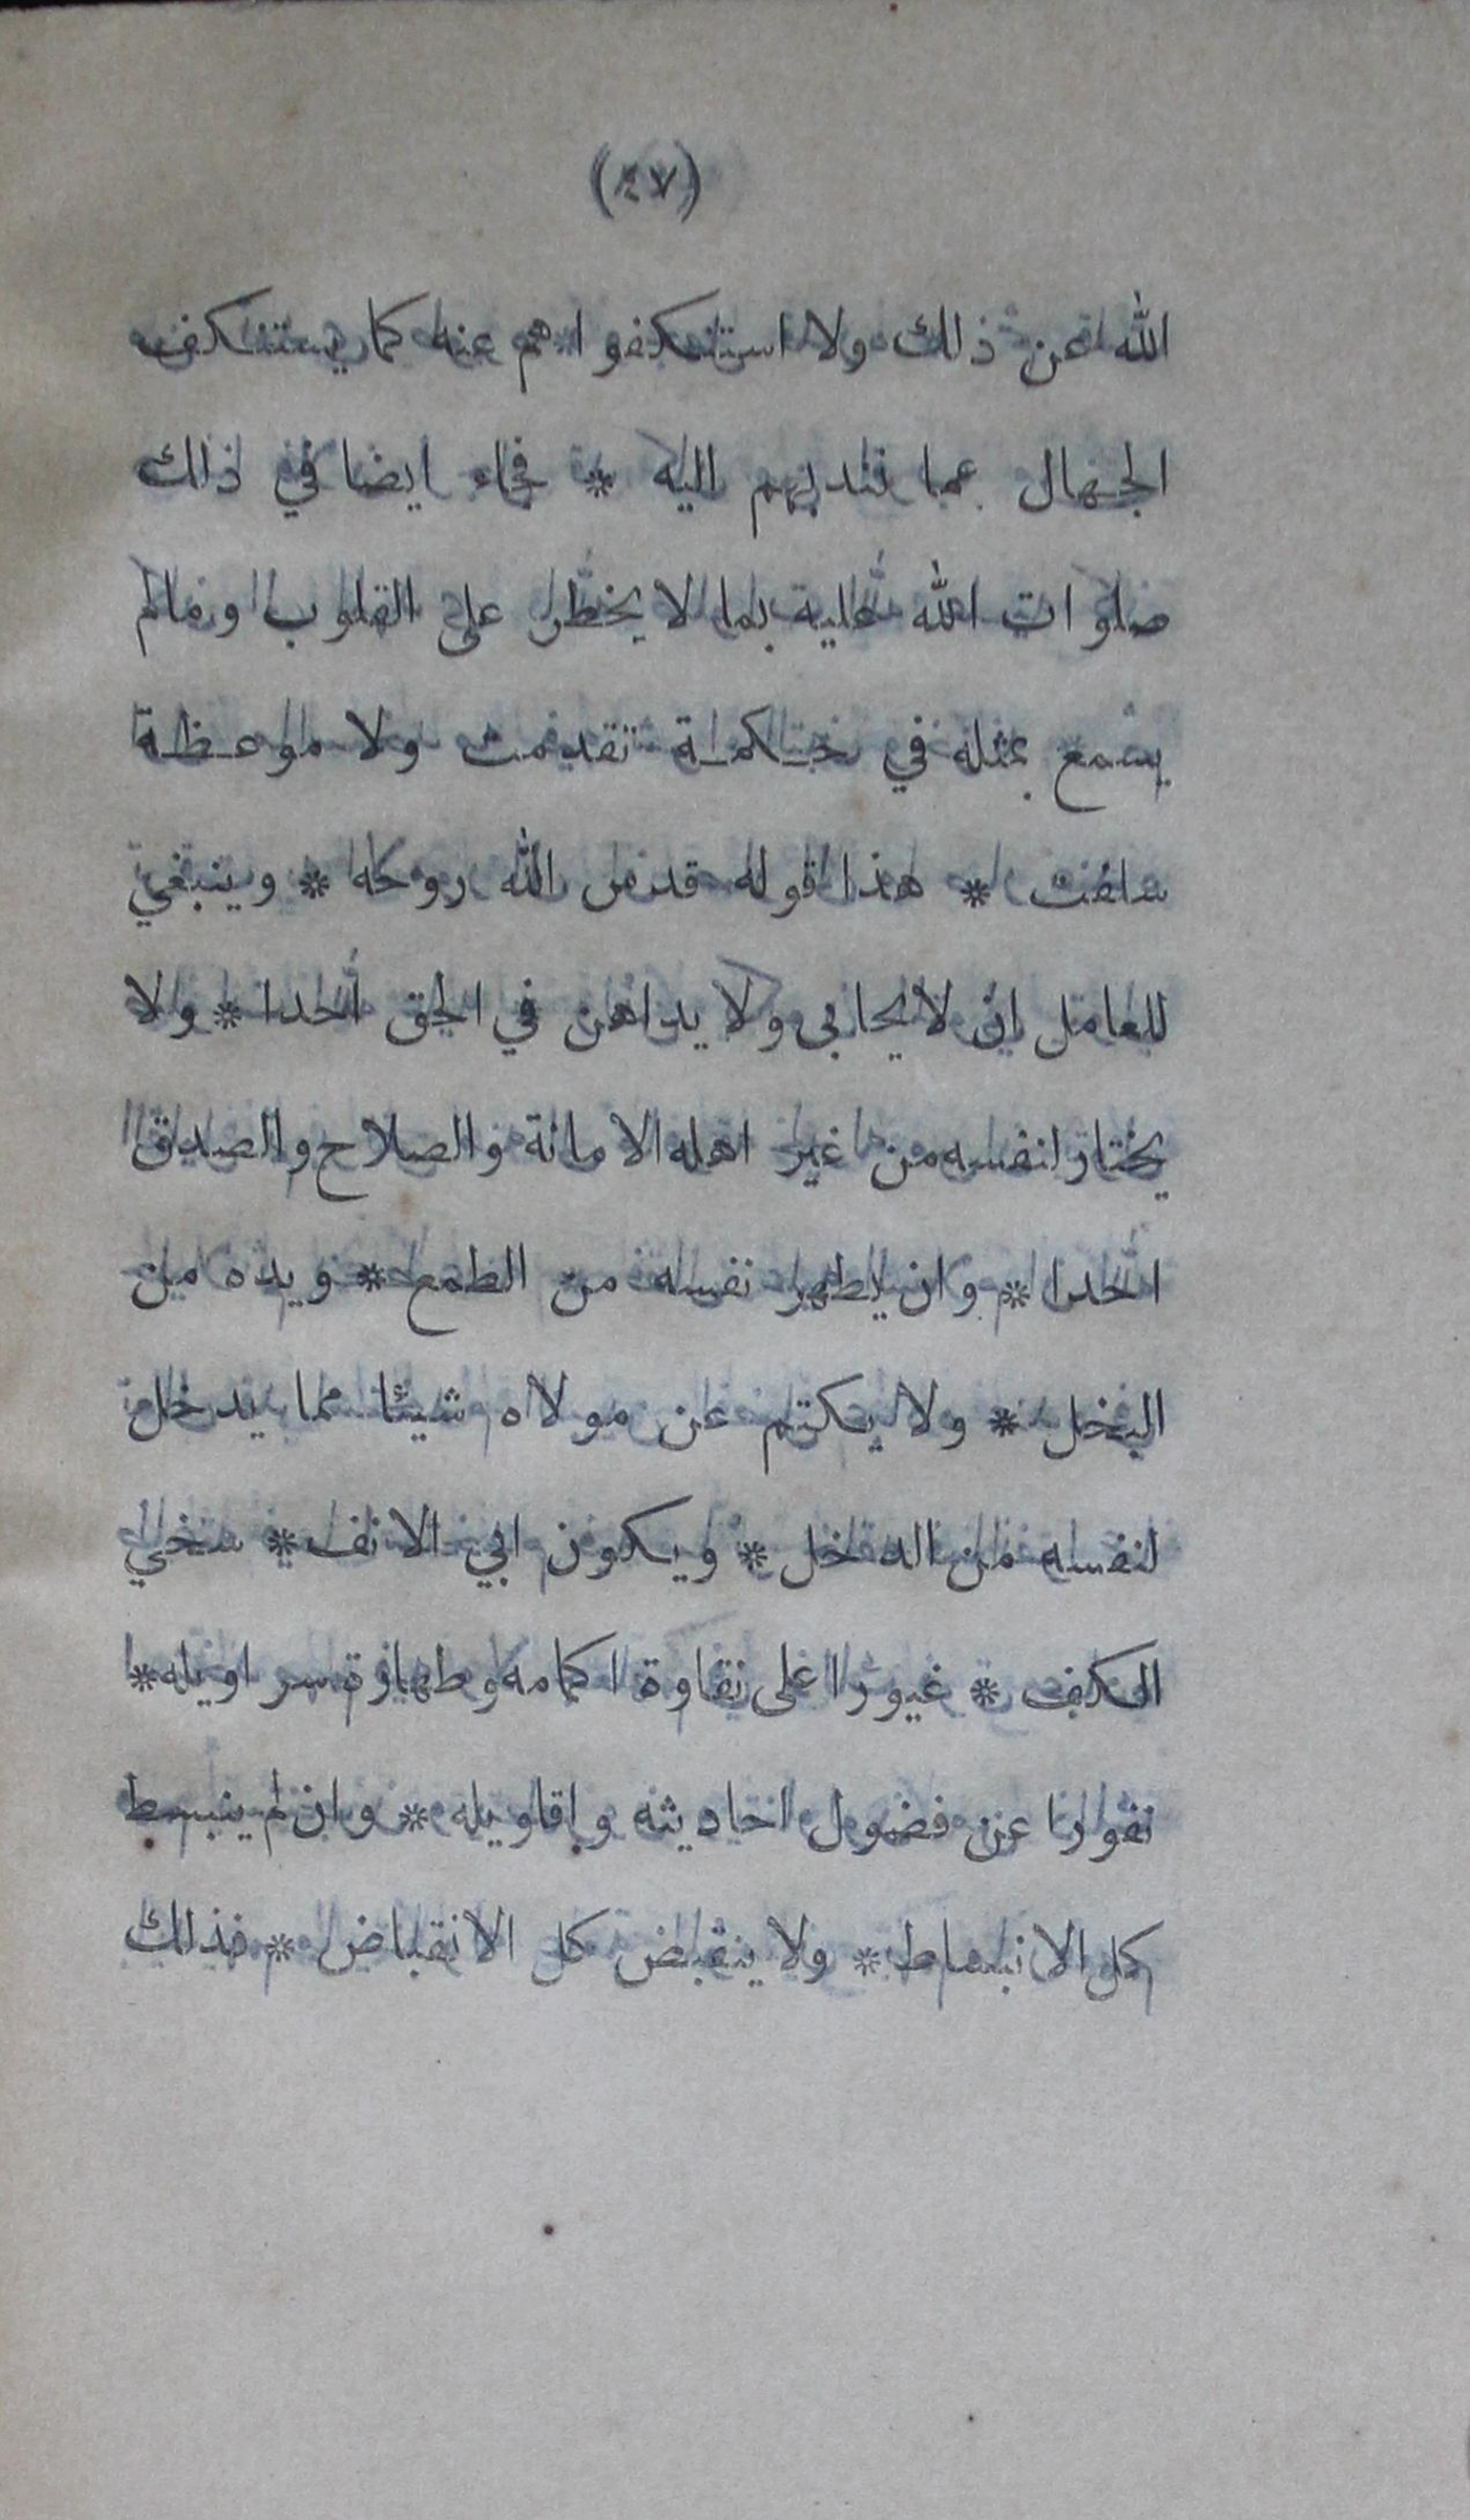 (٤٧)
الله عن ذلك ولا استنكفوا هم عنه كما يستنكف
الجهال عما نندبهم اليه * فجاء ايضا في ذلك
صلوات الله عليه بما لا يخطر على القلوب وما لم
يسمع بمثله في حكمة تقدمت ولا موعظة
سلفت * هذا قوله قدس الله روحه * وينبغي
للعامل ان لا يحابي ولا يداهن في الحق احدا * ولا
يختار لنفسه من غير اهل الامانة والصلاح والصدق
احدا * وان يطهر نفسه من الطمع * ويده من
البخل * ولا يكتم عن مولاه شيئا مما يدخل
لنفسه من الدخل * ويكون ابي الانف * سخي
الكف * غيورا على نقاوة اكمامه وطهارة سراويله *
نفورا عن فضول احاديثه واقاويله * وان لم ينبسط
كل الانبساط * ولا ينقبض كل الانقباض * فذلك